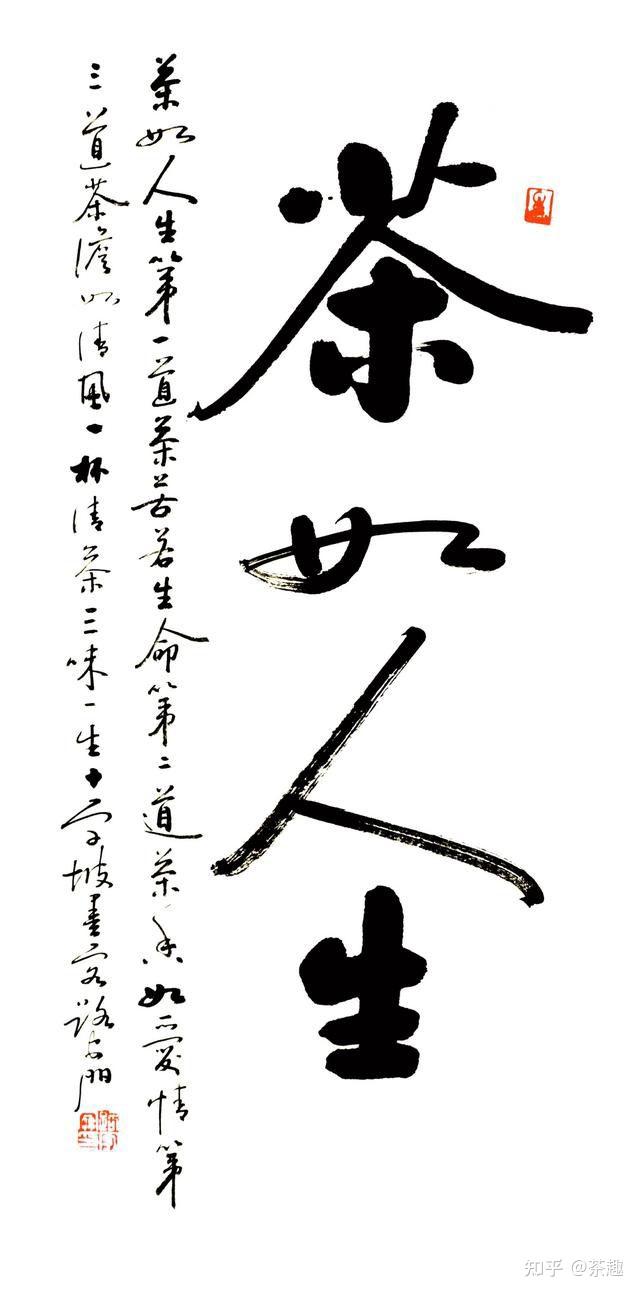 茶如人生
茶如人生第一道茶苦若生命第二道茶香如愛情第
三道茶澹如清風一杯清茶三味一生 坡書 門
知乎 @茶趣